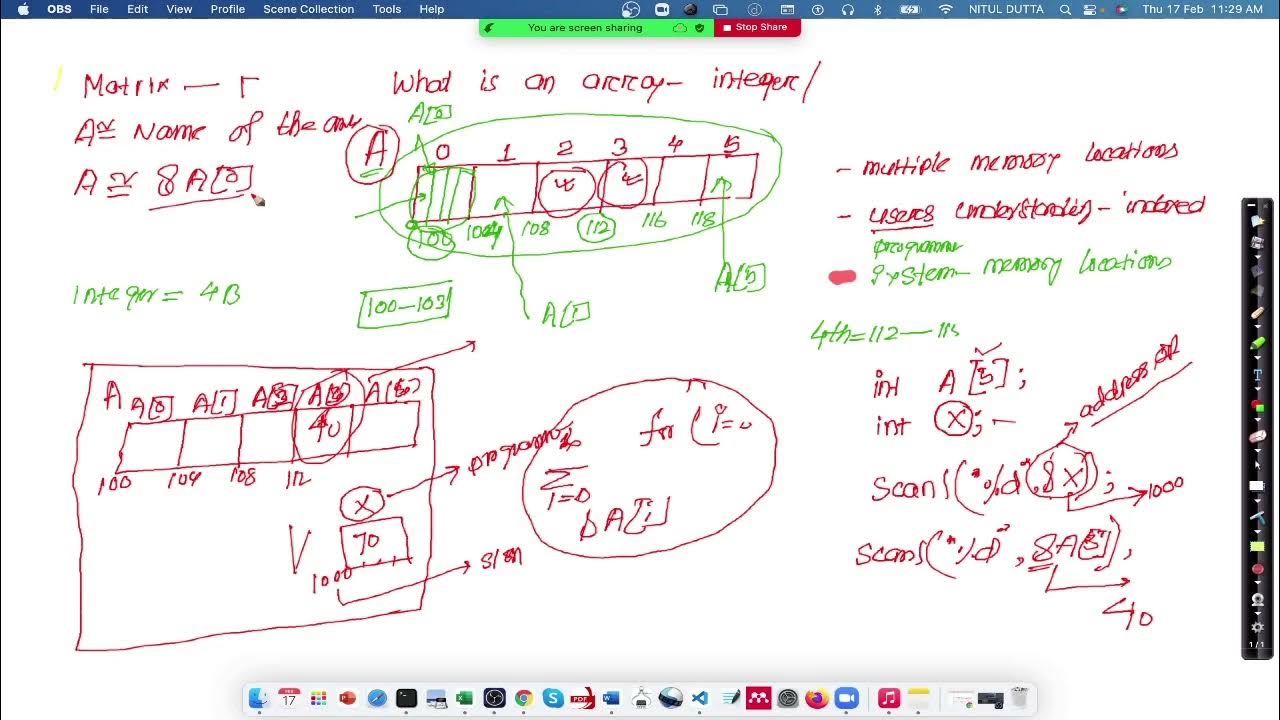 OBS File Edit View Profile Scene Collection Tools Help NITUL DUTTA Thu 17 Feb 11:29 AM
You are screen sharing Stop Share
Matrix — r
What is an array - integer/
A ≅ Name of the
A ≅ &A[0]
A[0]
A 0 1 2 3 4 5
100 104 108 112 116 118
100-103
A[1]
A[5]
Integer = 4B
- multiple memory locations
- users understanding - indexed
programmer
System - memory locations
4th = 112 — 115
A A[0] A[1]
40
100 104 108 112
X
70
1000
programmer
for (i=0
i=0
A[i]
int A[5];
int X;
address of
scanf("%d", &X);
1000
scanf("%d", &A[3]);
40
1/1